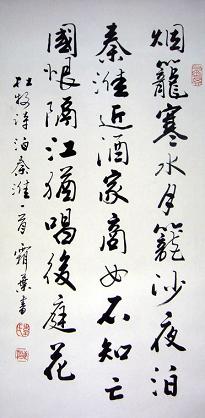 烟籠寒水月籠沙夜泊
秦淮近酒家商女不知亡
國恨隔江猶唱後庭花
杜牧詩泊秦淮一首霜葉書